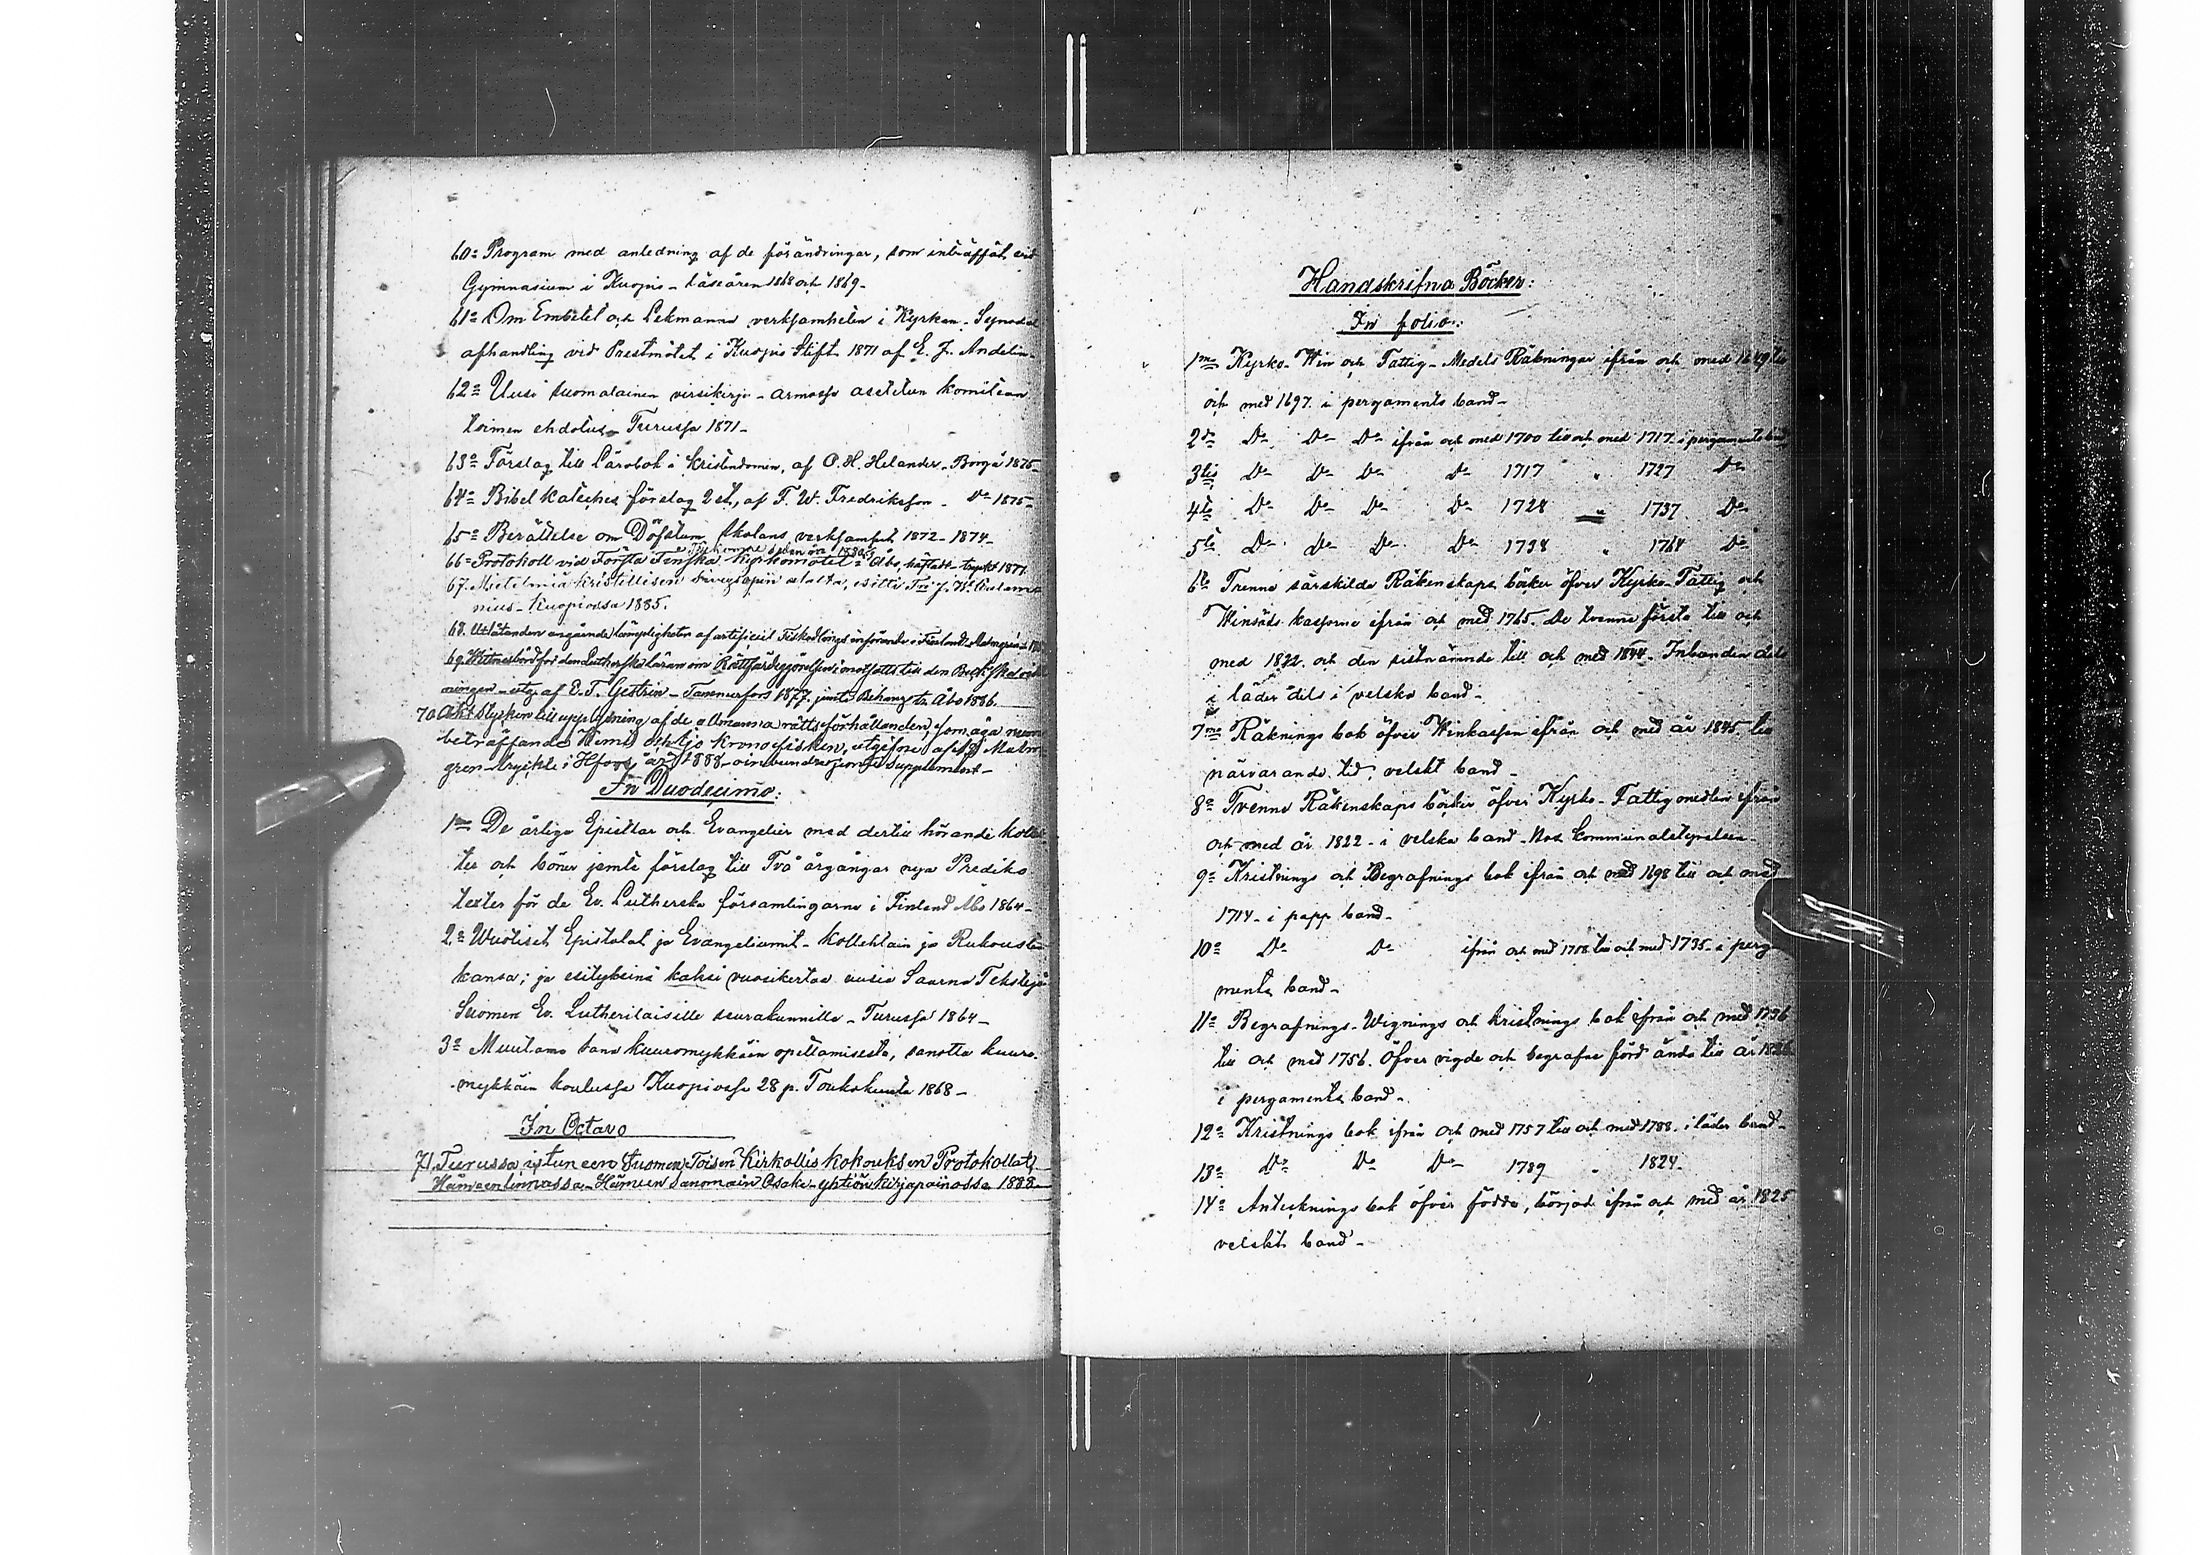 60= Program med anledning af de förändringar, som inträffat vid
Gymnasium i Kuopio - läseåren 1868 och 1869-
61= Om Embetet och Lekmanna verksamheten i Kyrkan. Synodal
afhandling vid Prestmötet i Kuopio Stift 1871 af E. J. Andelin
62= Uusi suomalainen virsikirja - armossa asetetun komitean
toimen ehdotus - Turussa 1871-
63= Förslag till Lärobok i kristendomen, af O. H. Helander - Borgå 1875-
64= Bibel kateches förslag 2 st, af F. W. Fredriksson - Do 1875-
65= Berättelse om Döfstum skolans verksamhet 1872-1874-
66= Protokoll vid Första Finska Kyrkomötet i Åbo, häftadt - tryckt 1877
67. Mietelmiä kristillisen
Kuopiossa 1885.
68. Utlåtanden angående lämpligheten af artificiel Fiskodlings införande i Finland
69. Wittnesbörd för den Lutherska läran om Rättfärdiggörelsen i motsatts till den
ningen - utg af E. T. Gestrin - Tammerfors 1877. jemte Bihang tr. Åbo 1886.
70 Aktstycken till upplysning af de allmänna rättsförhållanden, som äga rum
beträffande Kemi och Ijo kronofisken, utgifne af Malm
gren - tryckte i Hfors år 1888 - supplement -
In Duodecimo:
1mo De årliga Epistlar och Evangelier med dertill hörande kollek
ter och böner jemte förslag till Två årgångar nya Prediko
texter för de Ev. Lutherska församlingarna i Finland Åbo 1864-
2= Wuotiset Epistolat ja Evangeliumit - kollehtain ja Rukousten
kansa; ja esityksinä kaksi vuosikertaa uusia Saarna Tekstejä
Suomen Ev. Lutherilaisille seurakunnille - Turussa 1864-
3= Muutama sana kuuromykkäin opettamisesta, sanottu kuuro-
mykkäin koulussa Kuopiossa 28 p. Toukokuuta 1868-
In Octavo
71, Turussa istuneen Suomen Toisen Kirkollis kokouksen Protokollat
Hämeenlinnassa - Hämeen Sanomain Osake-yhtiön kirjapainossa 1888
Handskrifna Böcker:
In folio:
1mo Kyrko- Win och Fattig- Medels Räkningar ifrån och med 1649 till
och med 1697. i pergaments band-
2do Do Do Do ifrån och med 1700 till och med 1717 i pergaments band
3tio Do Do Do Do 1717 " 1727 Do
4to Do Do Do Do 1728 " 1737 Do
5to Do Do Do Do 1738 " 1764 Do
6to Trenne särskilda Räkenskaps böcker öfver Kyrko- Fattig och
Winsäds kassorna ifrån och med 1765. De tvenne första till och
med 1822. och den sistnämnde till och med 1844. Inbanden dels
i läder dels i velska band-
7mo Räknings bok öfver Winkassan ifrån och med år 1845. till
närvarande tid, velskt band-
8= Tvenne Räkenskaps böcker öfver Kyrko- Fattigmedlen ifrån
och med år 1822 - i velska band - Hos kommunalstyrelsen-
9= Kristnings och Begrafnings bok ifrån och med 1698 till och med
1714- i papp band-
10= Do Do ifrån och med 1718 till och med 1735- i perga
ments band-
11= Begrafnings- Wignings och kristnings bok ifrån och med 1736
till och med 1756. Öfver vigde och begrafne förd ända till år
i pergaments band-
12= Kristnings bok ifrån och med 1757 till och med 1788. i läder band-
13= Do Do Do 1789 " 1824-
14= Antecknings bok öfver födde, börjad ifrån och med år 1825
velskt band-